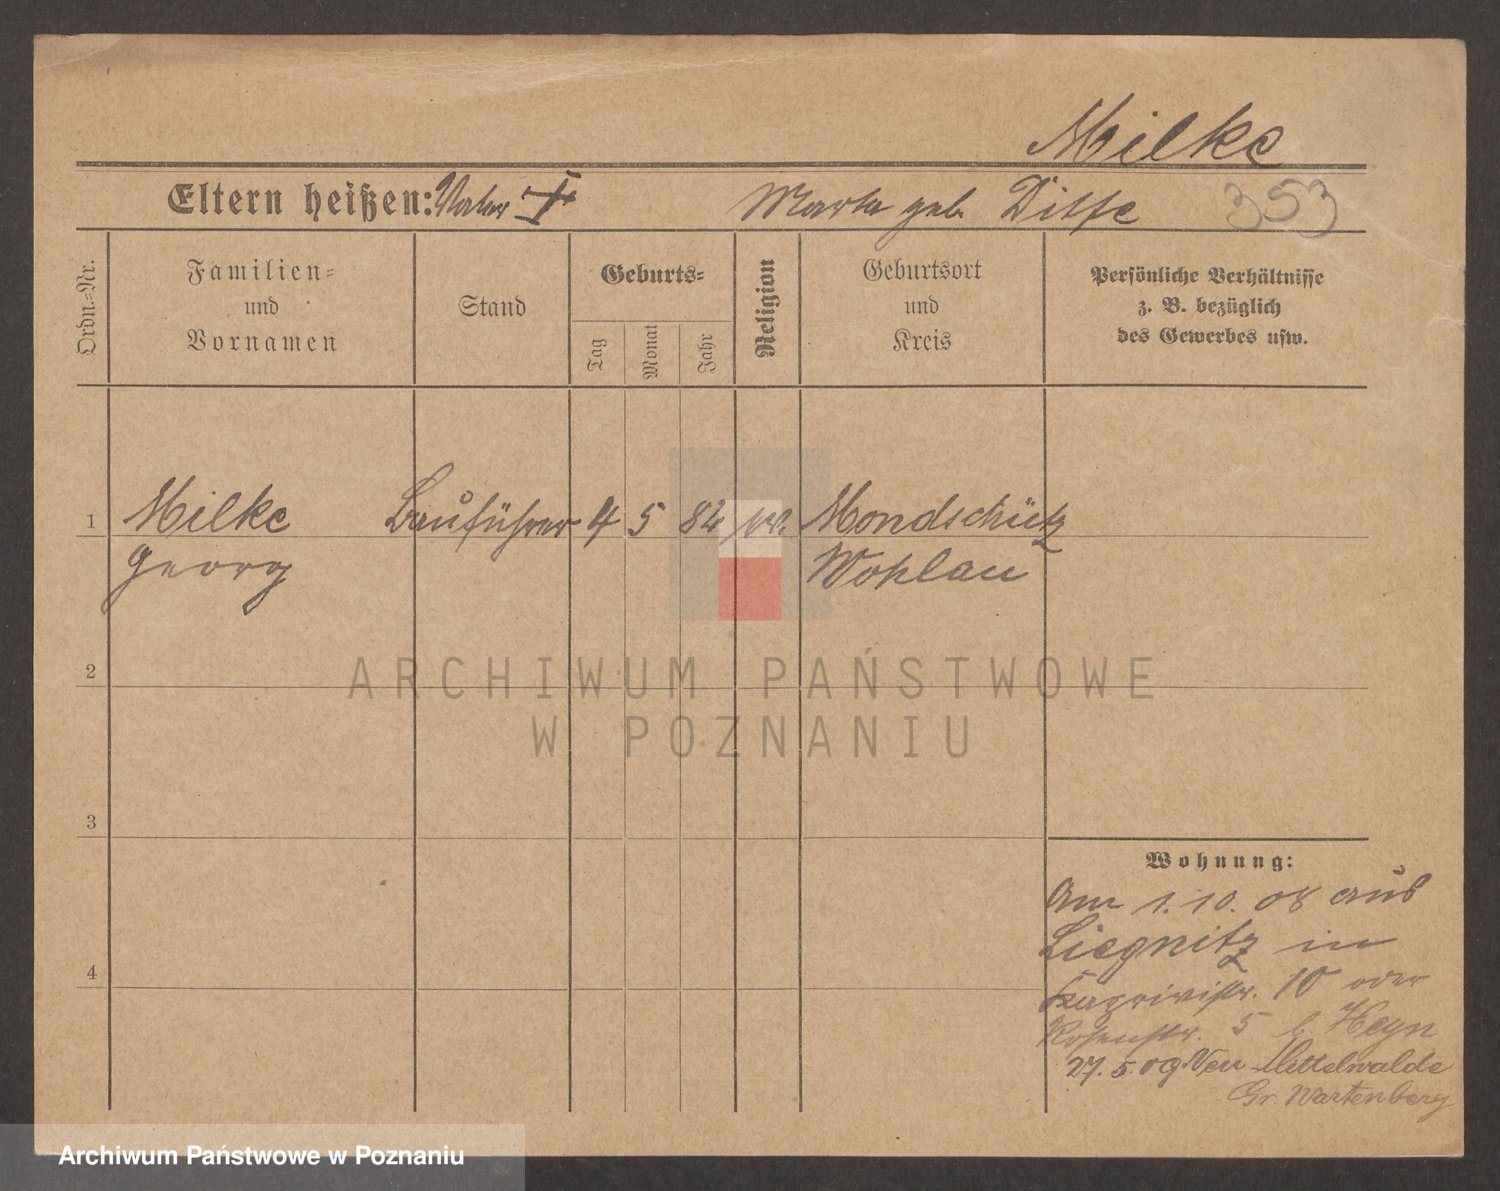 Milke
Eltern heißen: Vater † Marta geb. 353
Ordn.=Nr.
Familien=
und
Vornamen
Stand
Geburts=
Tag
Monat
Jahr
Religion
Geburtsort
und
Kreis
Persönliche Verhältnisse
z. B. bezüglich
des Gewerbes usw.
1 Milke Bauführer 4 5 82 ev. Mondschütz
Georg Wohlau
2
ARCHIWUM PAŃSTWOWE
W POZNANIU
3
Wohnung:
Am 1.10.08 aus
Liegnitz in
4
10 oder
Rosenstr. 5 b. Heyn
27.5.09 Neu Mittelwalde
Gr. Wartenberg
Archiwum Państwowe w Poznaniu